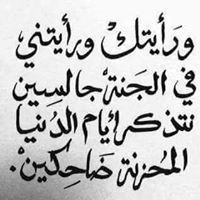 ورأيتك ورأيتني
في الجنة جالسين
نتذكر أيام الدنيا
المحزنة ضاحكين .